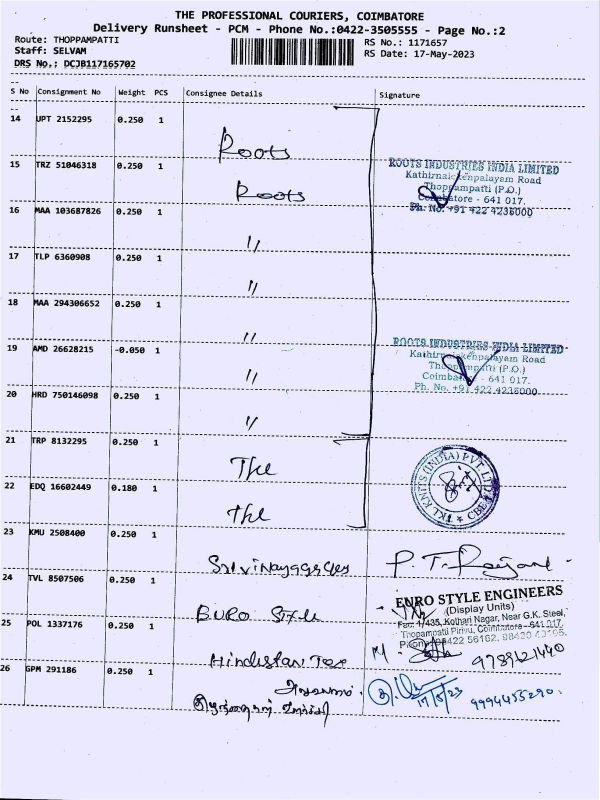 THE PROFESSIONAL COURIERS, COIMBATORE
Delivery Runsheet - PCM - Phone No.:0422-3505555 - Page No.:2
Route: THOPPAMPATTI
RS No.: 1171657
Staff: SELVAM
RS Date: 17-May-2023
DRS No.: DCJB117165702
S No Consignment No Weight PCS Consignee Details Signature
14 UPT 2152295 0.250 1 Roots
15 TRZ 51046318 0.250 1 Roots
ROOTS INDUSTRIES INDIA LIMITED
Kathirnaickenpalayam Road
Thoppampatti (P.O.)
Coimbatore - 641 017.
Ph. No. +91 422 4236000
16 MAA 103687826 0.250 1 "
17 TLP 6360908 0.250 1 "
18 MAA 294306652 0.250 1 "
19 AMD 26628215 -0.050 1 "
ROOTS INDUSTRIES INDIA LIMITED
Kathirnaickenpalayam Road
Thoppampatti (P.O.)
Coimbatore - 641 017.
Ph. No. +91 422 4236000
20 HRD 750146098 0.250 1 "
21 TRP 8132295 0.250 1 The
22 EDQ 16602449 0.180 1 The
TKT KNITS (INDIA) PVT. LTD. CBE
23 KMU 2508400 0.250 1
24 TVL 8507506 0.250 1 EURO Style
ENRO STYLE ENGINEERS
(Display Units)
Fac: 1/435, Kothari Nagar, Near G.K. Steel,
Thopampatti Pirivu, Coimbatore - 641 017.
25 POL 1337176 0.250 1 Hindustan Tex
26 GPM 291186 0.250 1
17/5/23